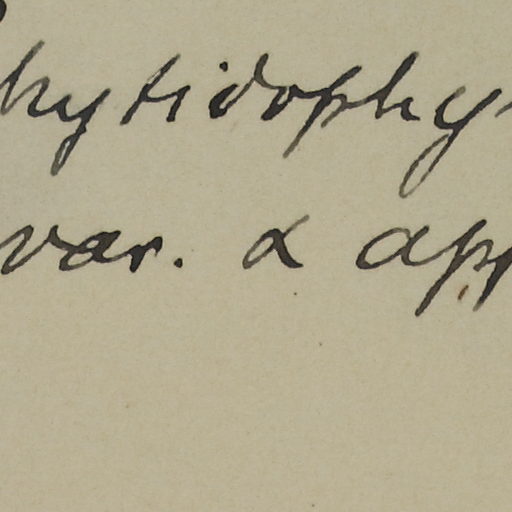 hytidophy
var. α app